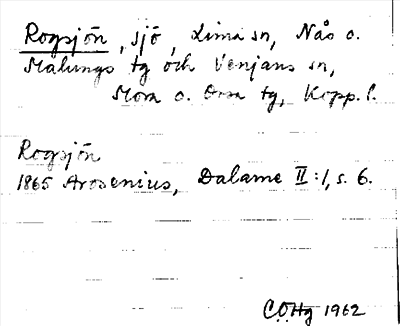 Rogsjön, sjö, Lima sn, Nås o.
Malungs tg och Venjans sn,
Mora o. Orsa tg, Kopp. l.
Rogsjön
1865 Arosenius, Dalarne II:1, s. 6.
C.O.Hg 1962